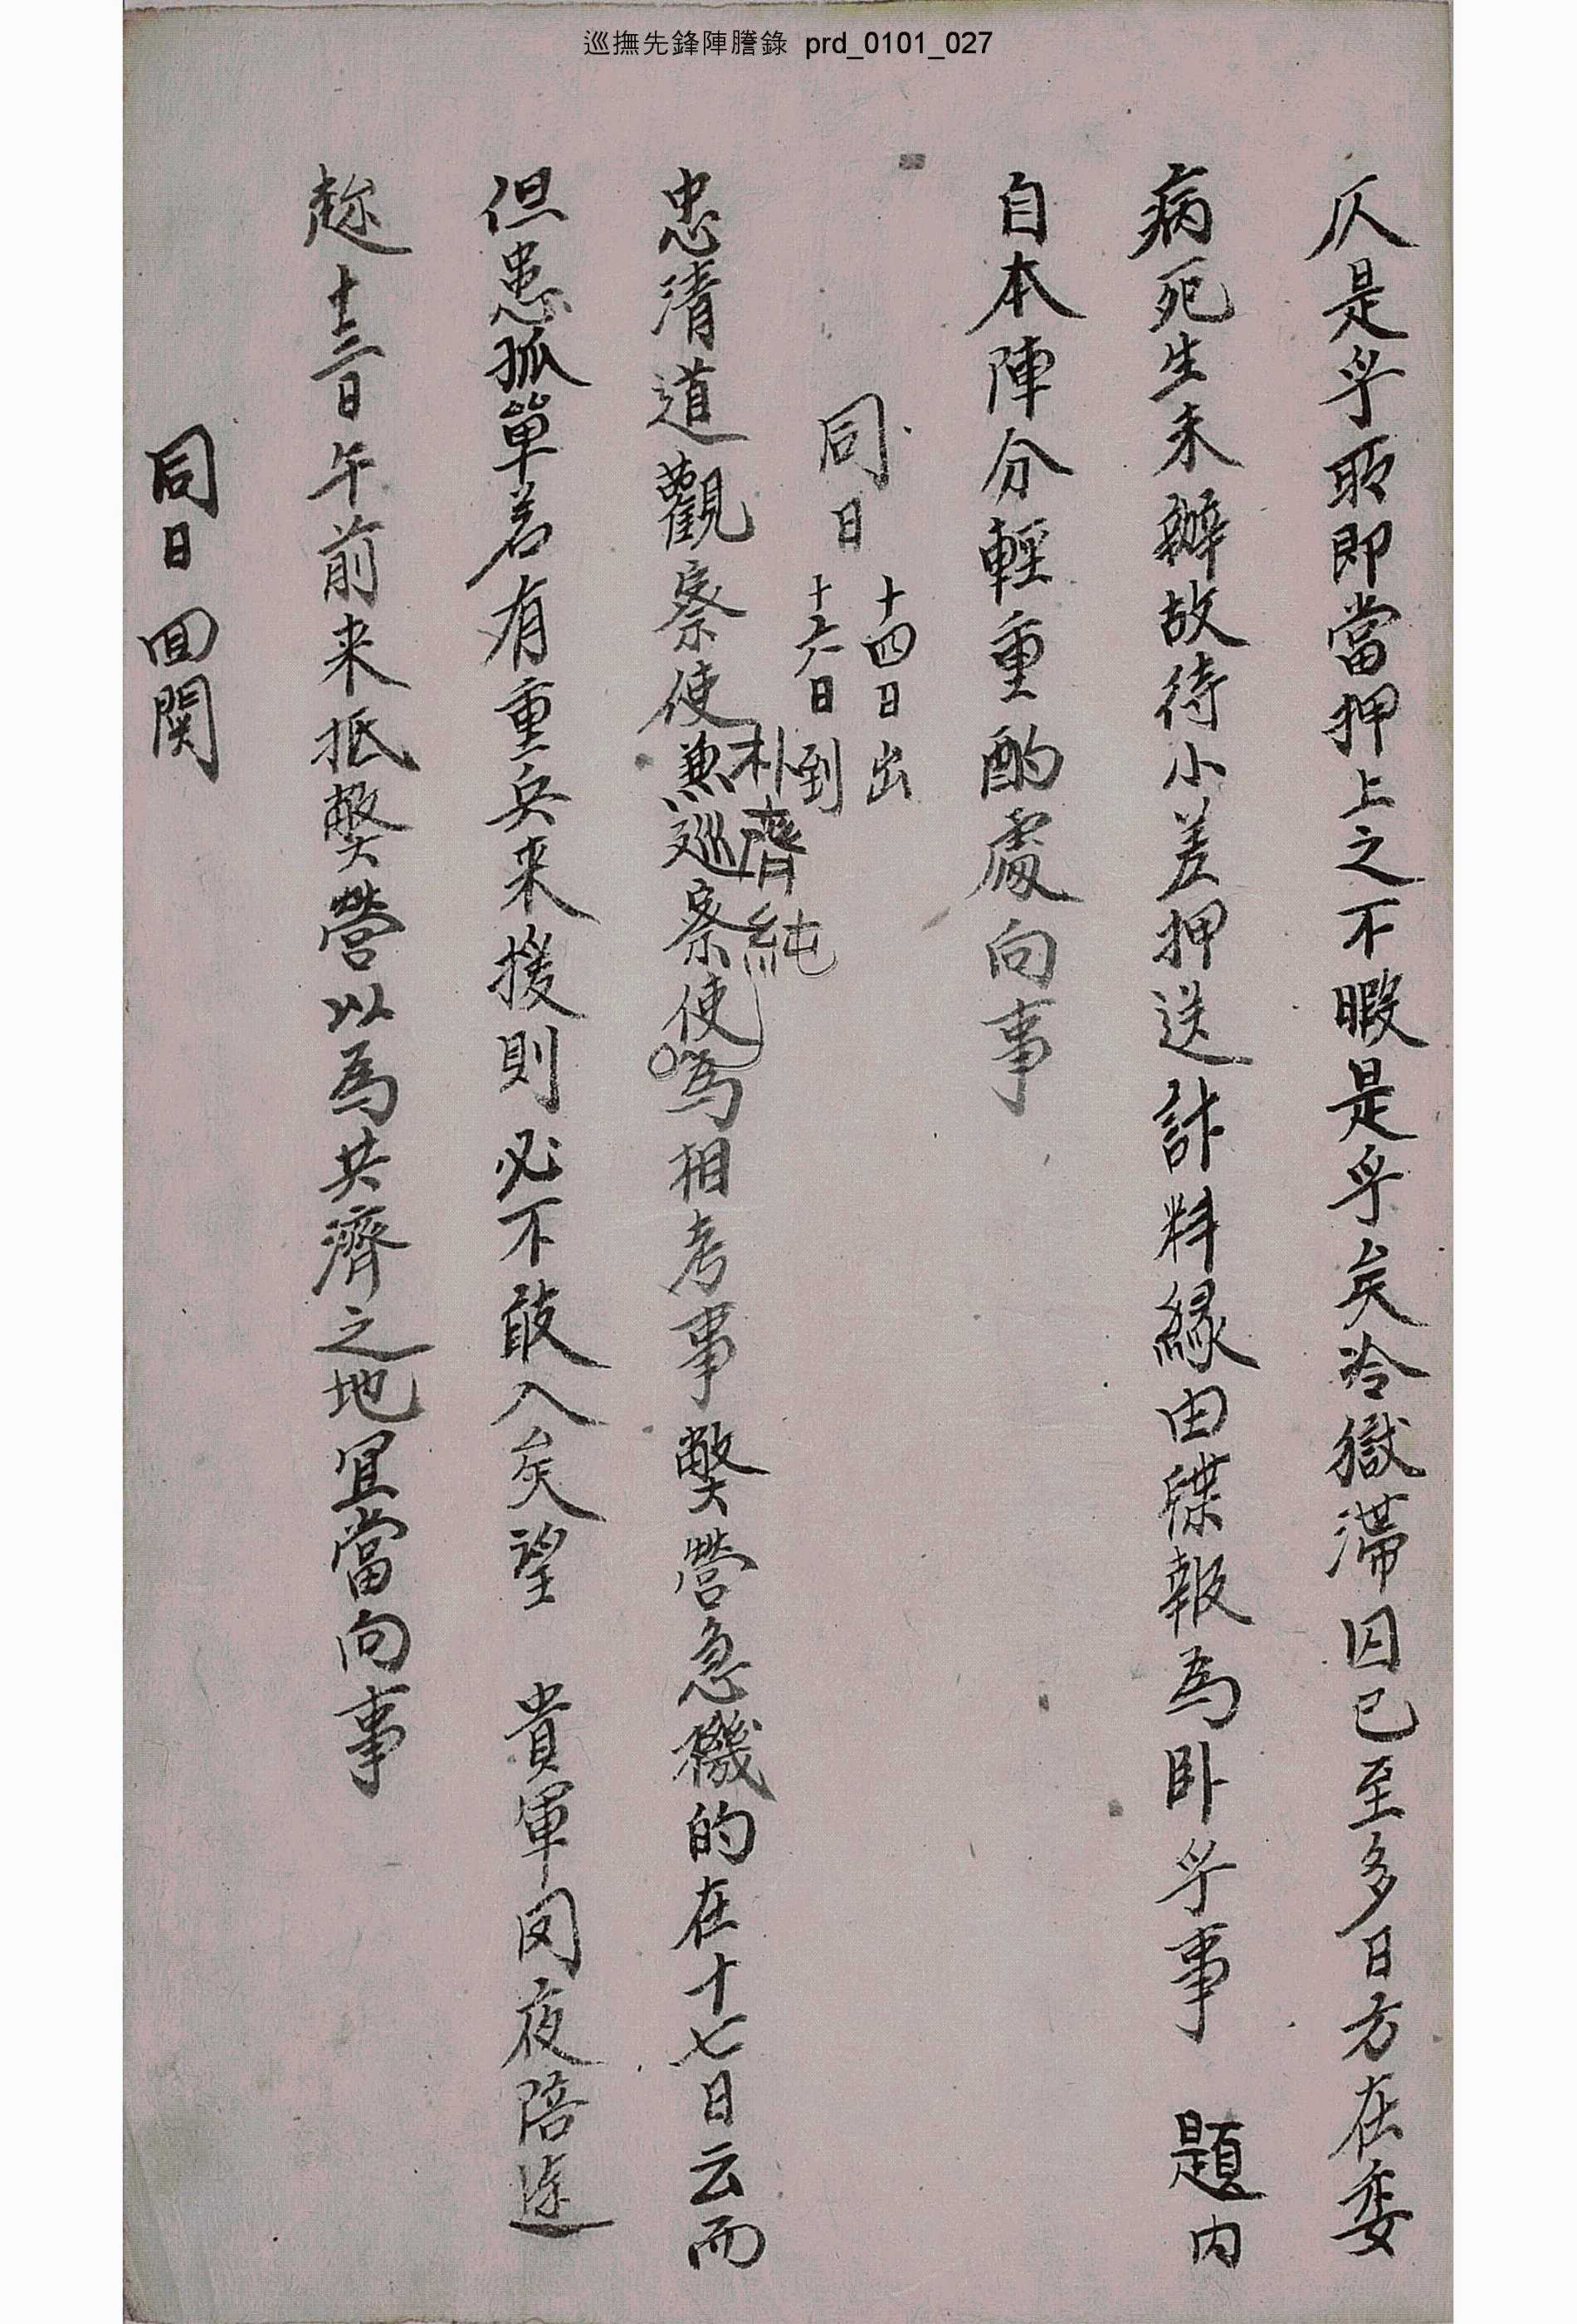 巡撫先鋒陣謄錄 prd_0101_027
仄是乎所即當押上之不暇是乎矣冷獄滯囚已至多日方在委
病死生未辦故待小差押送計料緣由牒報爲卧乎事 題內
自本陣分輕重酌處向事
同日 十四日出
十六日到
忠清道觀察使兼巡察使爲相考事弊營急機的在十七日云而
朴齊純
但患孤單若有重兵来援則必不敢入矣望 貴軍罔夜陪道
趂十三日午前来抵弊營以爲共濟之地宜當向事
同日 回関